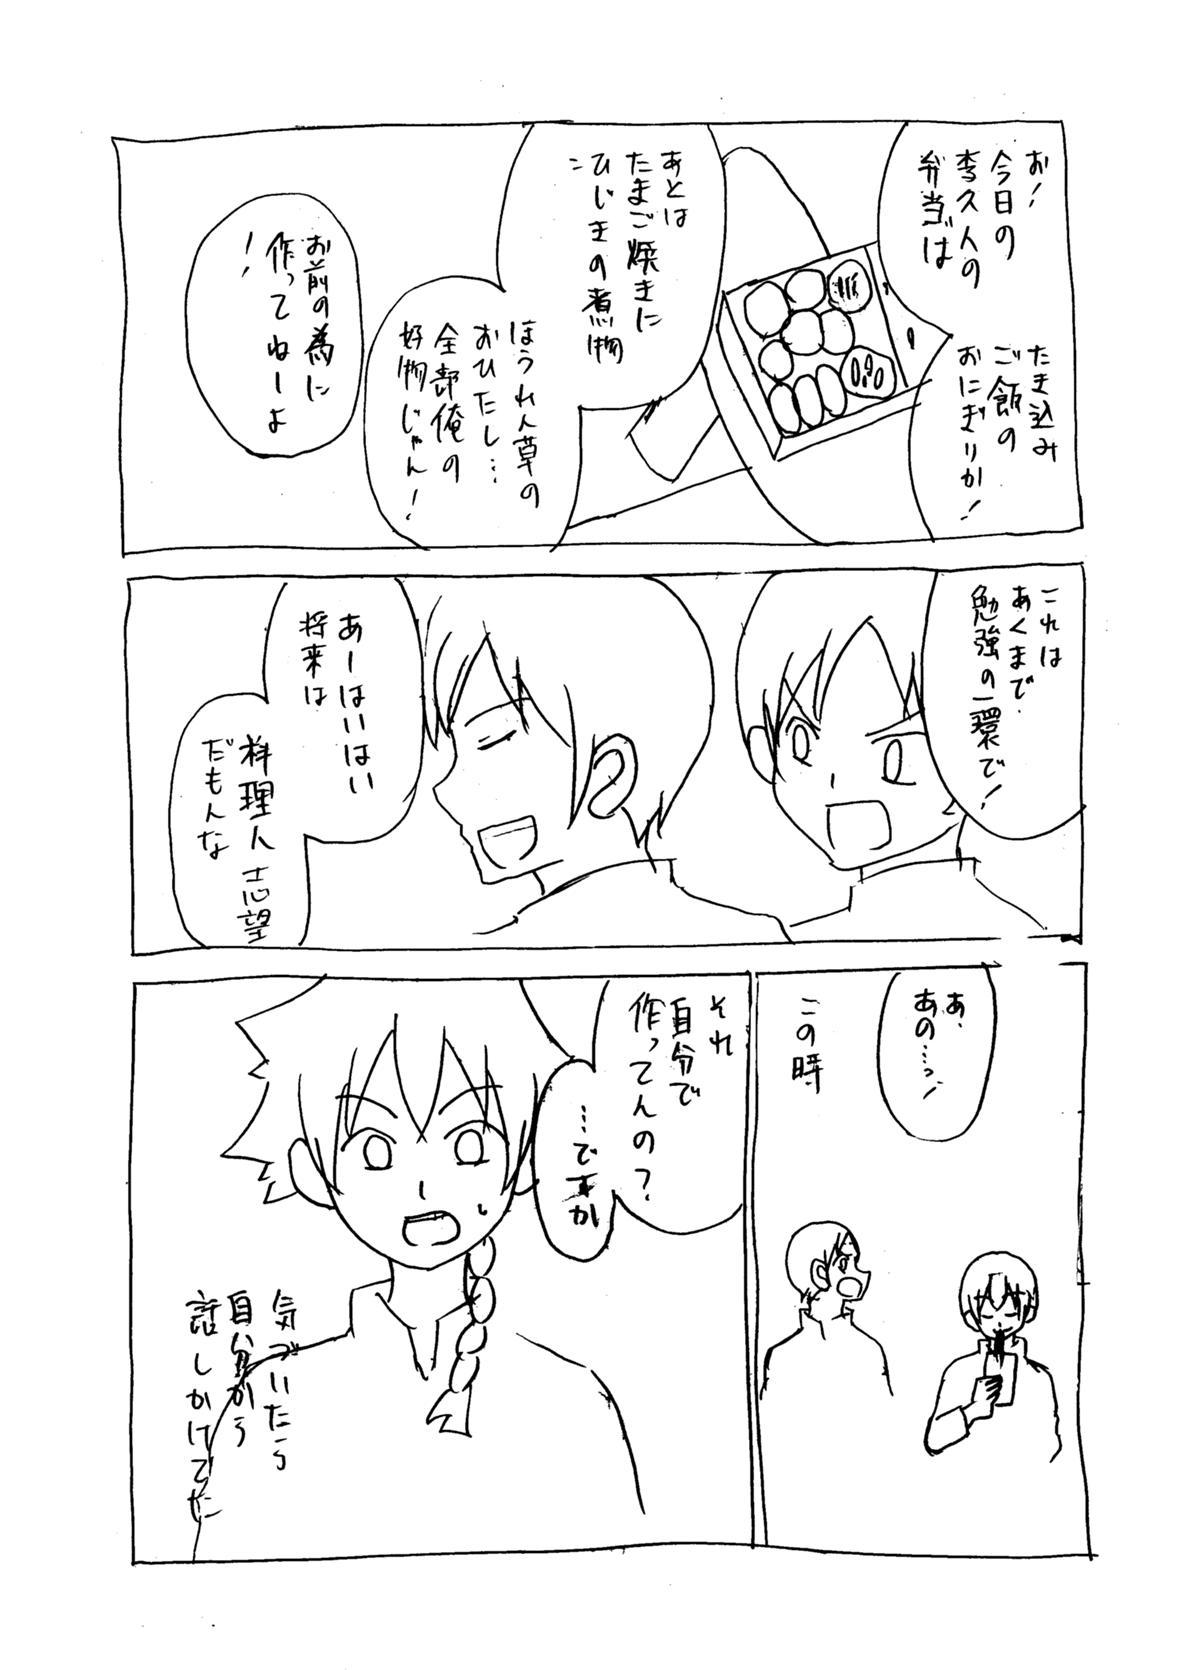 お！
今日の
李久人の
弁当は
たき込み
ご飯の
おにぎりか！
あとは
たまご焼きに
ひじきの煮物
ほうれん草の
おひたし…
全部俺の
好物じゃん！
お前の為に
作ってねーよ
！！
これは
あくまで
勉強の一環で！
あーはいはい
将来は
料理人志望
だもんな
あ、
あの…っ！
この時
それ
自分で
作ってんの？
…ですか
気づいたら
自分から
話しかけてた